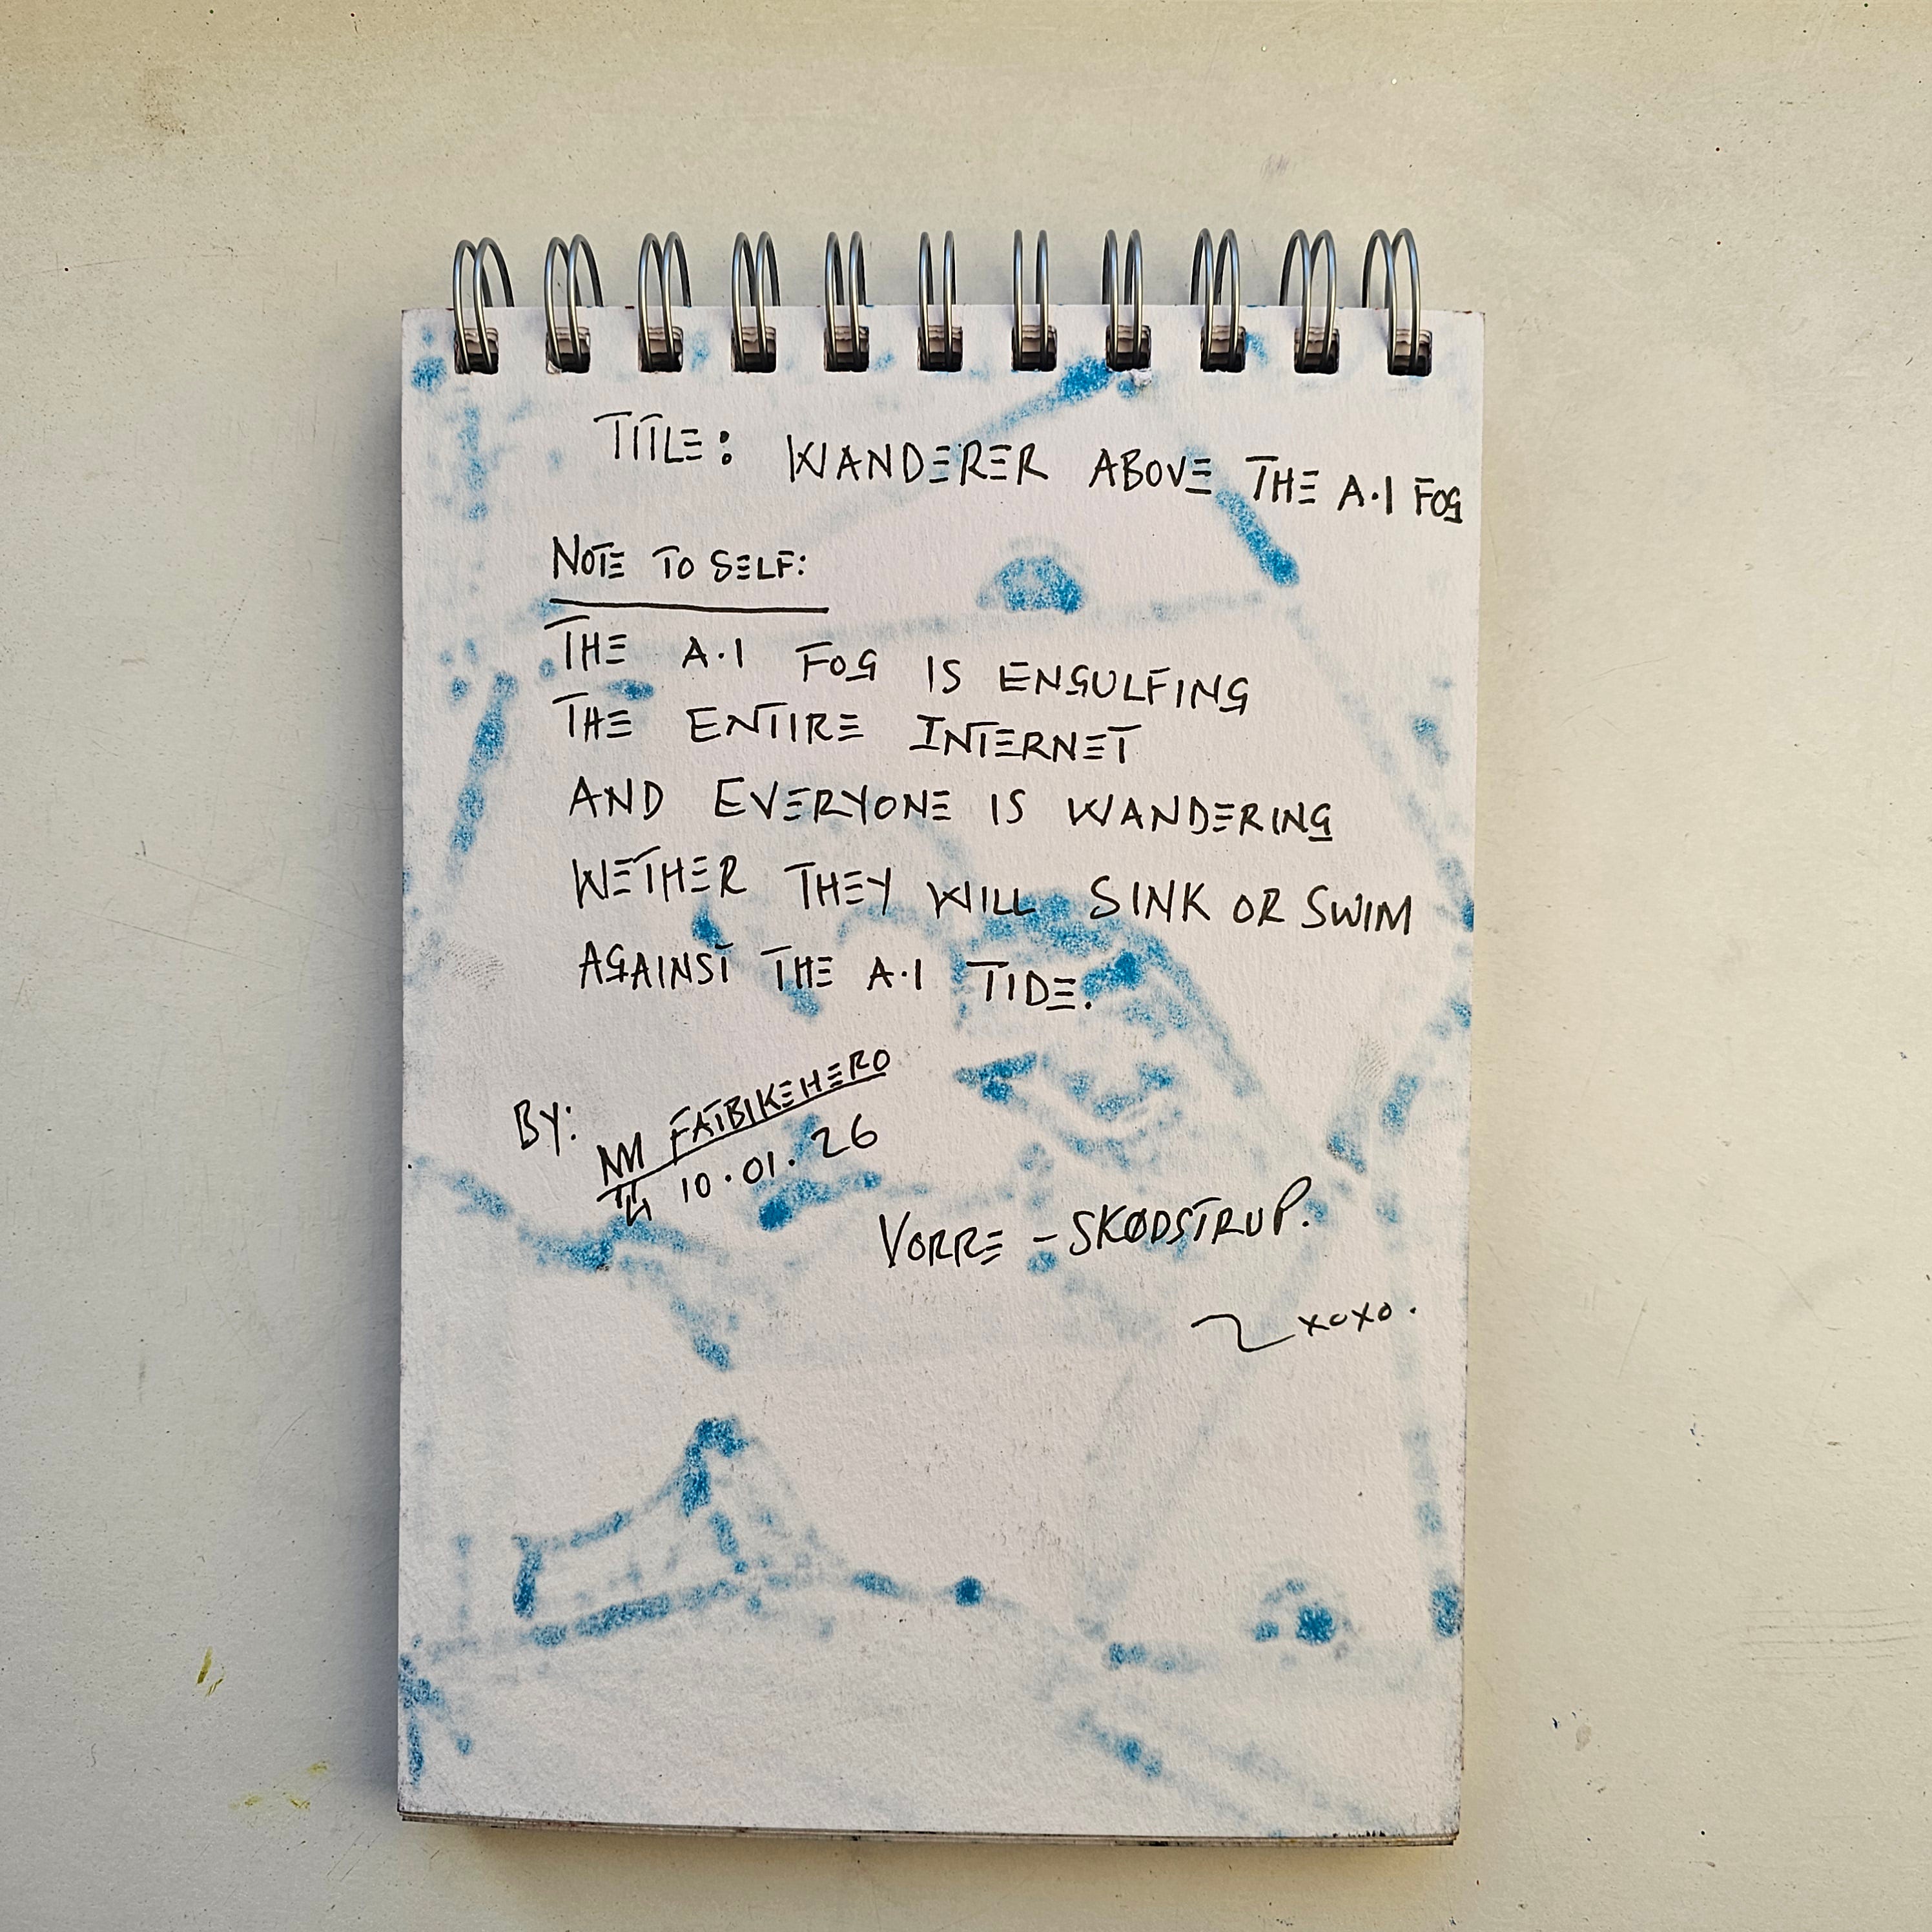 TITLE: WANDERER ABOVE THE A.I FOG
NOTE TO SELF:
THE A.I FOG IS ENGULFING
THE ENTIRE INTERNET
AND EVERYONE IS WANDERING
WETHER THEY WILL SINK OR SWIM
AGAINST THE A.I TIDE.
BY: FATBIKEHERO
10.01.26
VORRE - SKØDSTRUP.
xoxo.